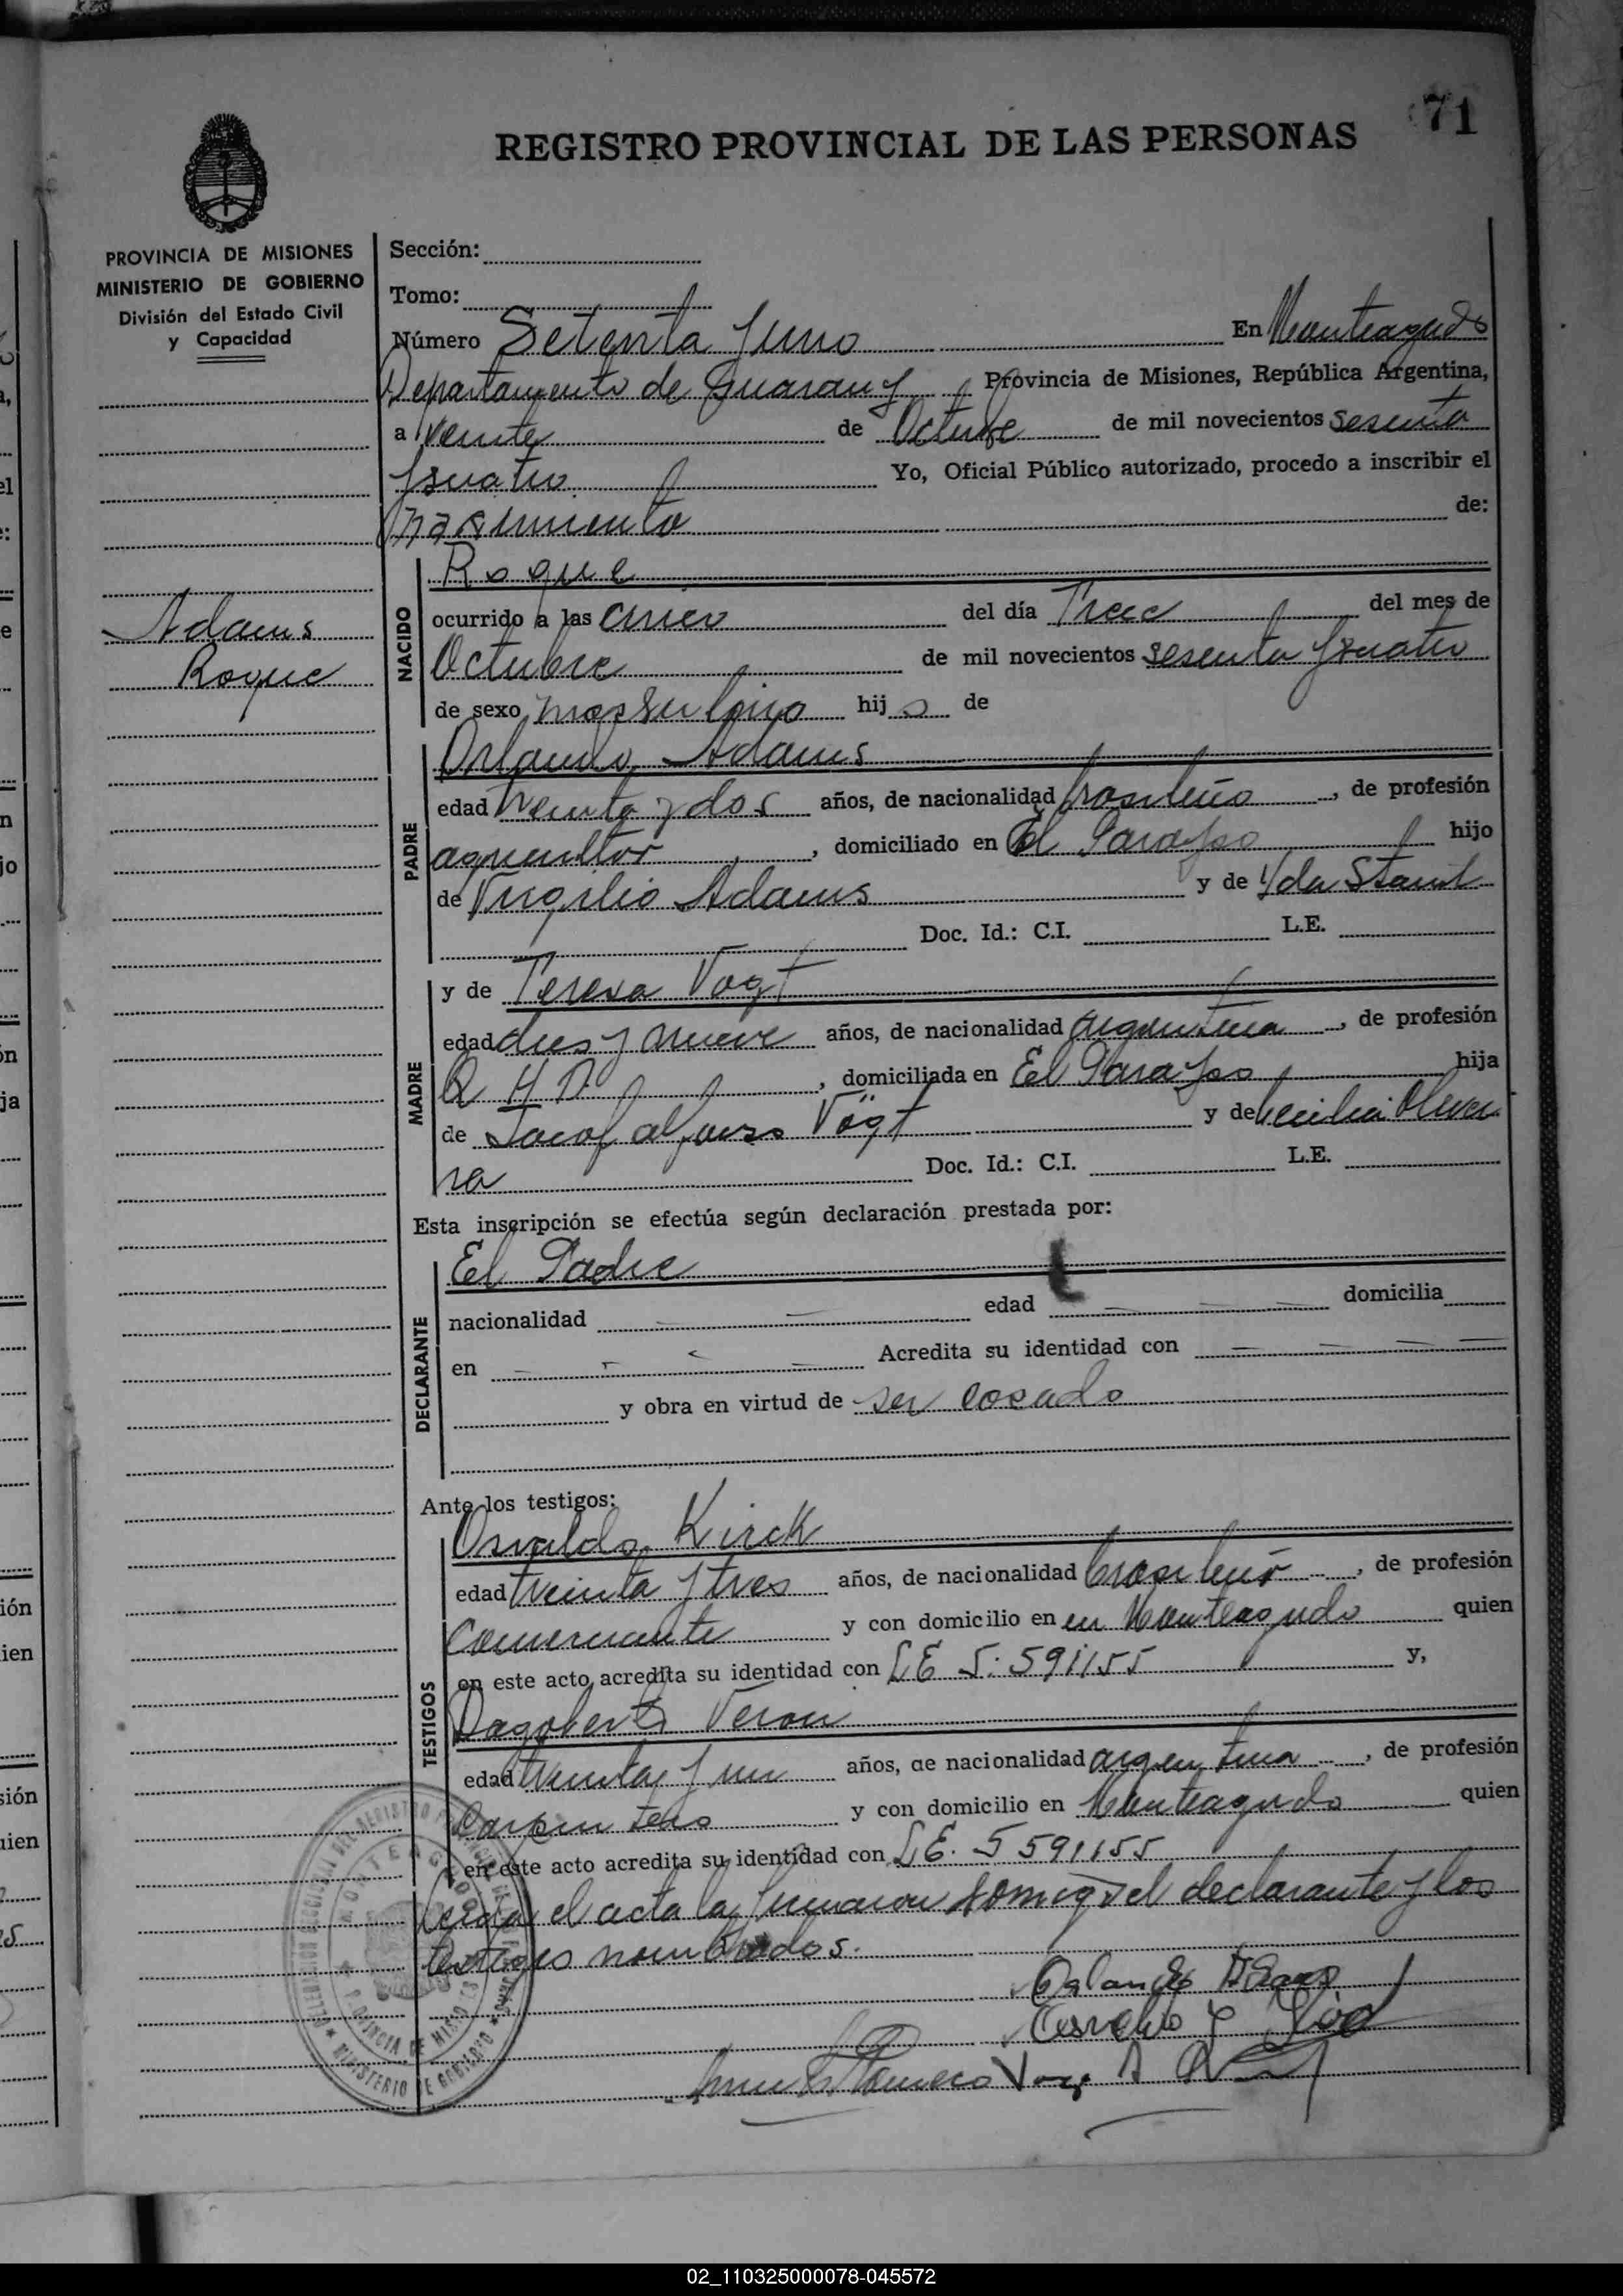 71
REGISTRO PROVINCIAL DE LAS PERSONAS
PROVINCIA DE MISIONES
MINISTERIO DE GOBIERNO
División del Estado Civil
y Capacidad
Adams
Roque
Sección:
Tomo:
Número Setenta y uno En Monteagudo
Departamento de Guarany Provincia de Misiones, República Argentina,
a veinte de Octubre de mil novecientos sesenta
y cuatro Yo, Oficial Público autorizado, procedo a inscribir el
nacimiento de:
NACIDO
Roque
ocurrido a las cinco del día Trece del mes de
Octubre de mil novecientos sesenta y cuatro
de sexo masculino hijo de
PADRE
Orlando Adams
edad treinta y dos años, de nacionalidad brasileño, de profesión
agricultor, domiciliado en El Parayso hijo
de Virgilio Adams y de Yda
Doc. Id.: C.I. L.E.
MADRE
y de Teresa Vogt
edad dies y nueve años, de nacionalidad argentina, de profesión
Q H D, domiciliada en El Parayso hija
de Jacob alfonso Vögt y de Cecilia Olivei
ra Doc. Id.: C.I. L.E.
Esta inscripción se efectúa según declaración prestada por:
DECLARANTE
El Padre
nacionalidad edad domicilia
en Acredita su identidad con
y obra en virtud de ser casado
Ante los testigos:
TESTIGOS
Osvaldo Kirck
edad treinta y tres años, de nacionalidad brasileño, de profesión
Comerciante y con domicilio en en Monteagudo quien
en este acto acredita su identidad con LE 5.591155 y,
Dagoberto Veron
edad treinta y un años, de nacionalidad argentina, de profesión
Carpintero y con domicilio en Monteagudo quien
en este acto acredita su identidad con L.E. 5591155
Leida el acta la firmaron conmigo el declarante y los
testigos nombrados.
Orlando Adams
02_110325000078-045572